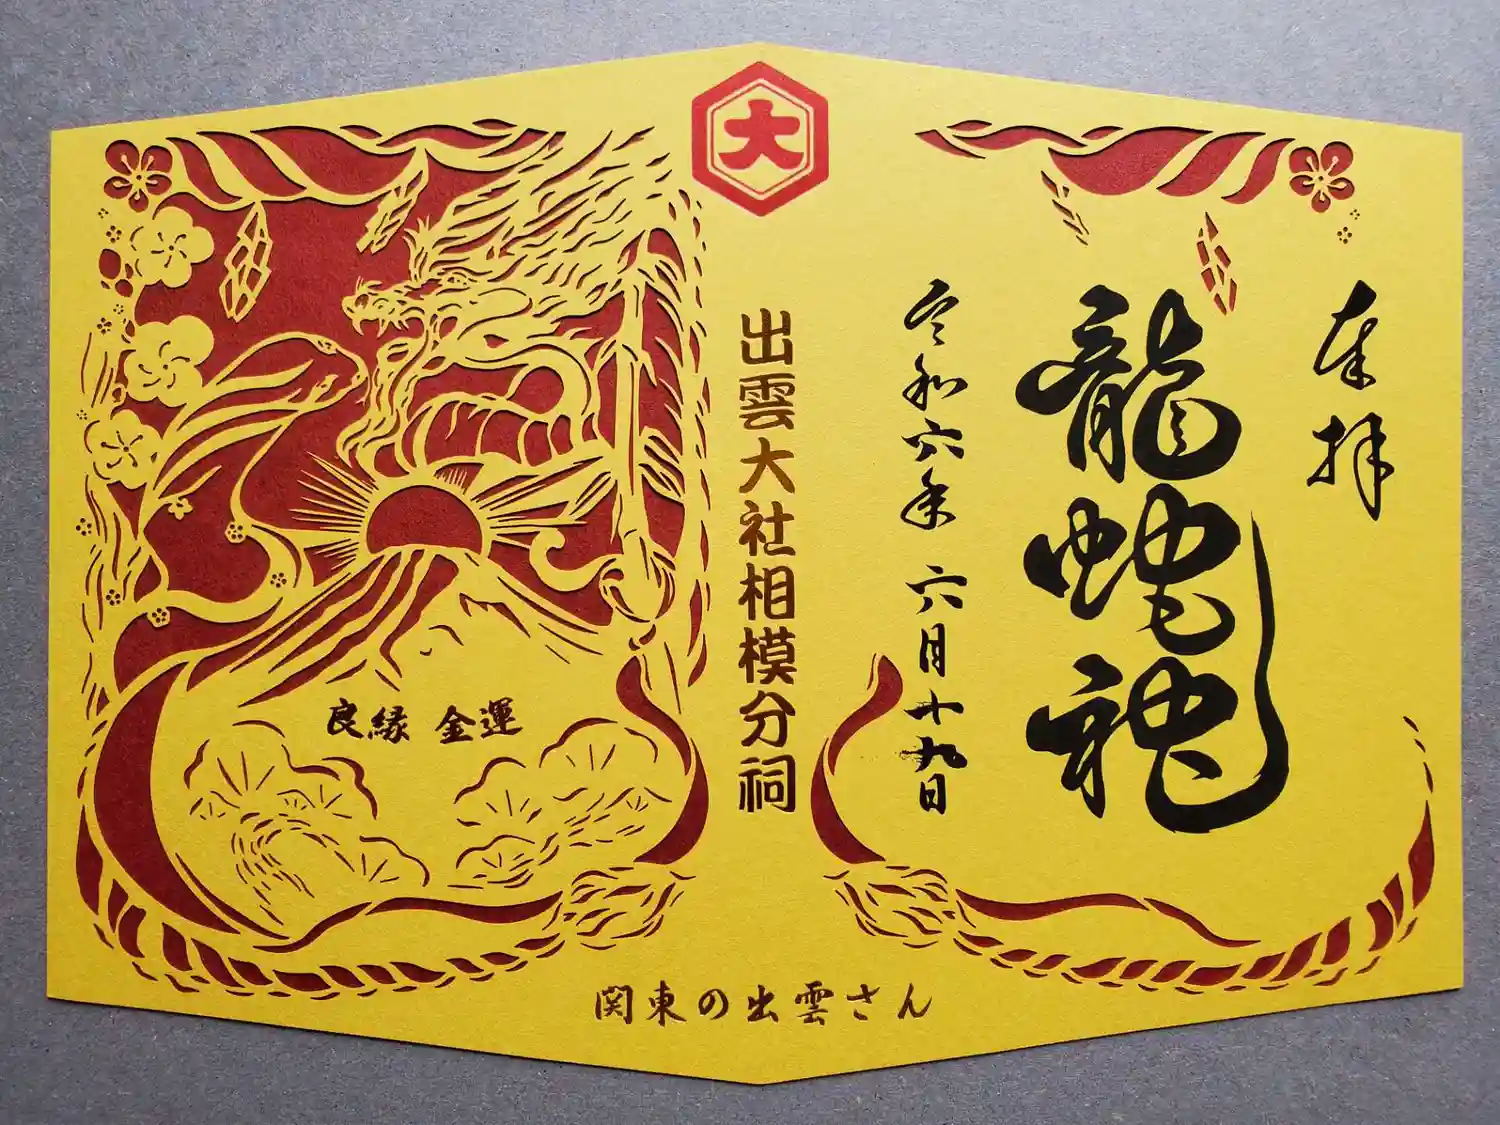 大
奉拝
龍蛇神
令和六年 六月十九日
出雲大社相模分祠
良縁 金運
関東の出雲さん